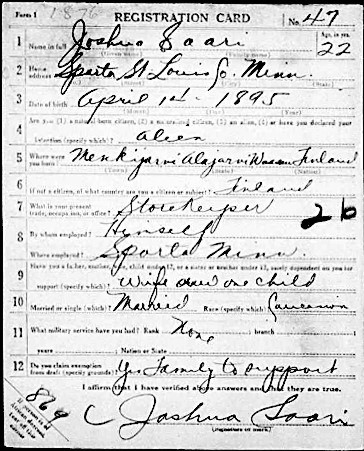 Form 1 1896 REGISTRATION CARD No. 47
1 Name in full Joshua Saari Age, in yrs. 22
2 Home address Sparta St. Louis Co. Minn.
3 Date of birth April 1st 1895
4 Are you (1) a natural-born citizen, (2) a naturalized citizen, (3) an alien, (4) or have you declared your
intention (specify which)? alien
5 Where were you born? Menkijarvi Alajarvi Wasa Finland
(Town) (State) (Nation)
6 If not a citizen, of what country are you a citizen or subject? Finland
7 What is your present trade, occupation, or office? Storekeeper 26
8 By whom employed? Hymself
Where employed? Sparta Minn.
9 Have you a father, mother, wife, child under 12, or a sister or brother under 12, solely dependent on you for
support (specify which)? Wife and one child
10 Married or single (which)? Married Race (specify which)? Caucasian
11 What military service have you had? Rank None branch
years Nation or State
12 Do you claim exemption from draft (specify grounds)? Yes Family to support
I affirm that I have verified above answers and that they are true.
869
If person is of African descent, tear off this corner
Joshua Saari
(Signature or mark)